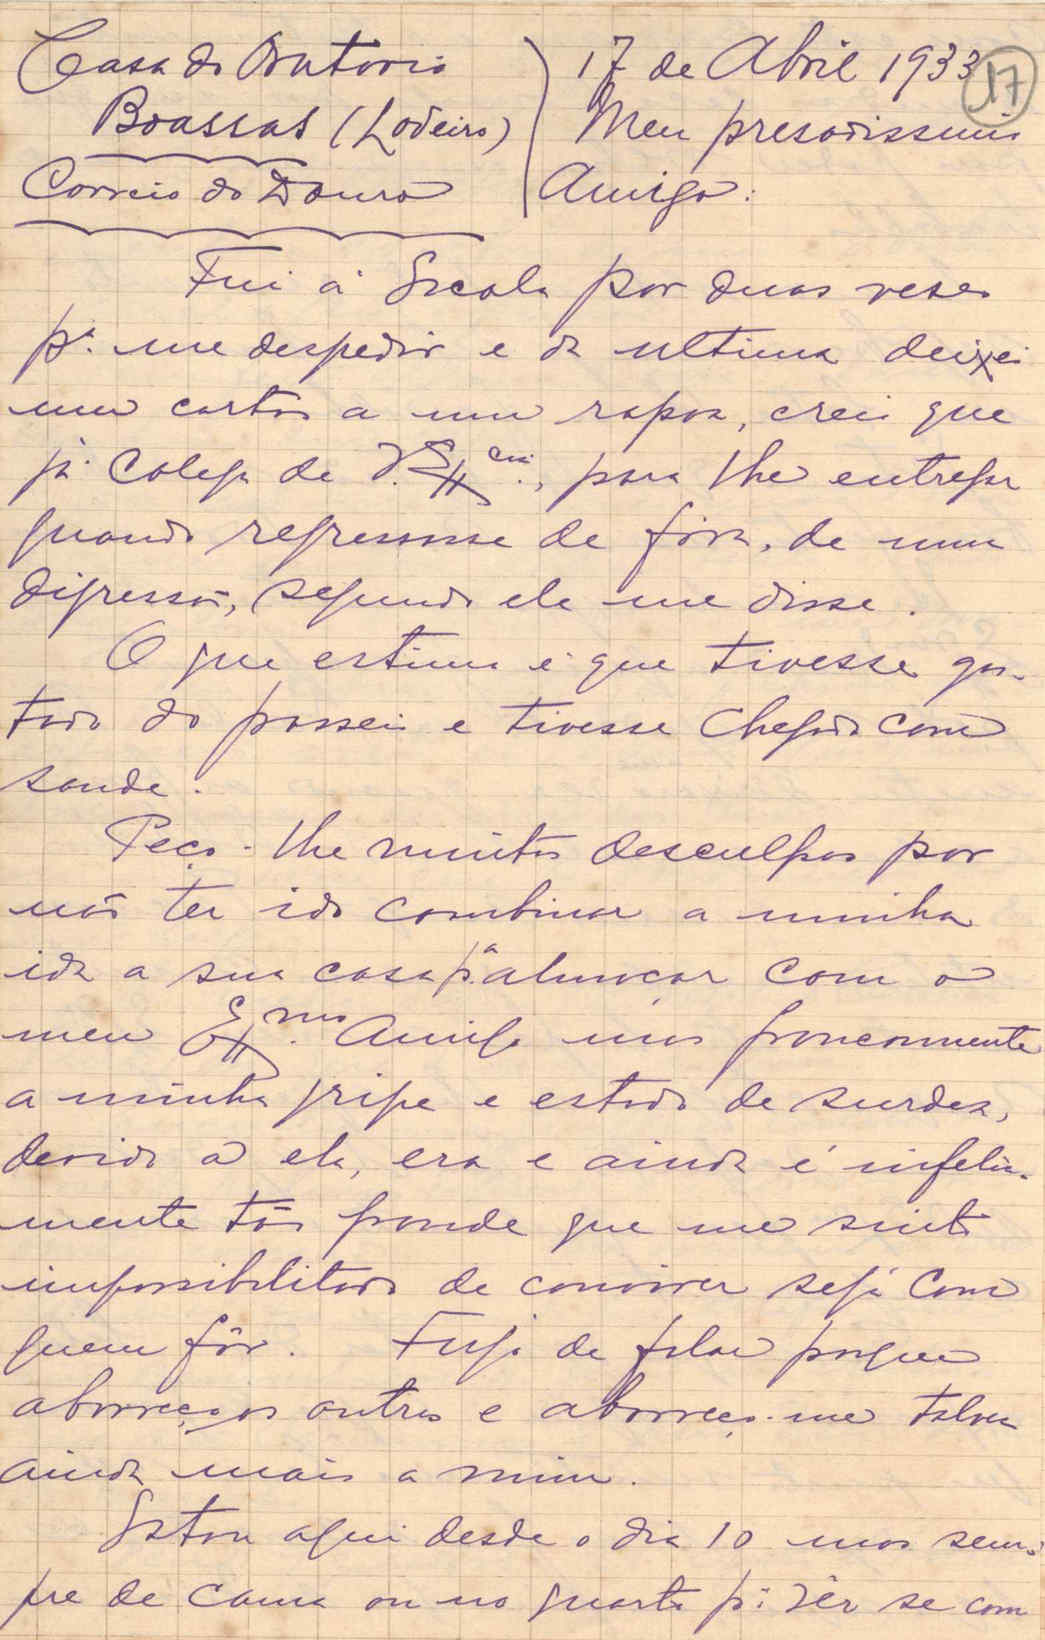 Casa do Oratorio
Boassas (Lodeiro)
Correio do Douro
17 de Abril 1933
17
Meu presadissimo
Amigo:
Fui á Escola por duas veses
pª. me despedir e da ultima deixei
um cartão a um rapaz, creio que
já colega de V. Exª., para lhe entregar
quando regressasse de fóra, de uma
digressão, segundo ele me disse.
O que estimo é que tivesse gos-
tado do passeio e tivesse chegado com
saude.
Peço-lhe muitas desculpas por
não ter ido combinar a minha
ida a sua casa pª almoçar com o
meu Exmo. Amigo mas francamente
a minha gripe e estado de surdez,
devido a ela, era e ainda é infeliz-
mente tão grande que me sinto
impossibilitado de conviver seja com
quem fôr. Fujo de falar porque
aborreço os outros e aborreço-me talvez
ainda mais a mim.
Estou aqui desde o dia 10 mas sem-
pre de cama ou no quarto pª. vêr se com